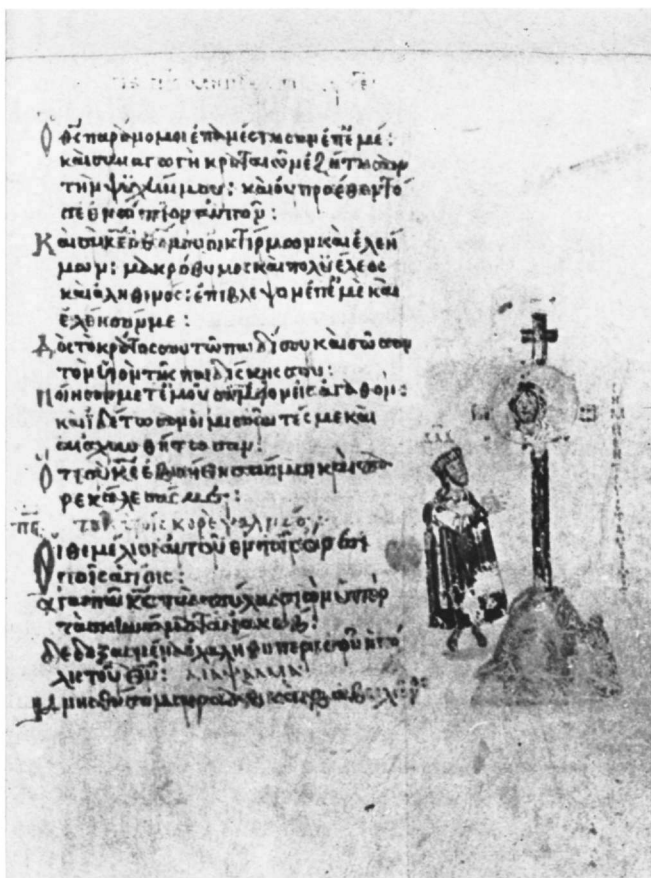 Ὁ θς παράνομοι ἐπανέστησαν ἐπ' ἐμέ:
καὶ συναγωγὴ κραταιῶν ἐζήτησαν
τὴν ψυχήν μου: καὶ οὐ προέθεντό
σε ἐνώπιον αὐτῶν:
Καὶ σὺ κε ὁ θς μου οἰκτίρμων καὶ ἐλεή
μων: μακρόθυμος καὶ πολυέλεος
καὶ ἀληθινός: ἐπίβλεψον ἐπ' ἐμὲ καὶ
ἐλέησόν με:
Δὸς τὸ κράτος σου τῷ παιδί σου καὶ σῶσον
τὸν υἱὸν τῆς παιδίσκης σου:
Ποίησον μετ' ἐμοῦ σημεῖον εἰς ἀγαθόν:
καὶ ἰδέτωσαν οἱ μισοῦντές με καὶ
αἰσχυνθήτωσαν:
Ὅτι σὺ κε ἐβοήθησάς μοι καὶ πα
ρεκάλεσάς με:
τοῖς υἱοῖς κορὲ ψαλμός
Οἱ θεμέλιοι αὐτοῦ ἐν τοῖς ὄρεσι
τοῖς ἁγίοις:
ἀγαπᾷ κς τὰς πύλας σιὼν ὑπὲρ
τὰ σκηνώματα ἰακώβ:
δεδοξασμένα ἐλαλήθη περὶ σοῦ ἡ πό
λις τοῦ θυ: διάψαλμα
μνησθήσομαι ραὰβ καὶ βαβυλῶνος